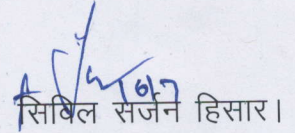 सिविल सर्जन हिसार।